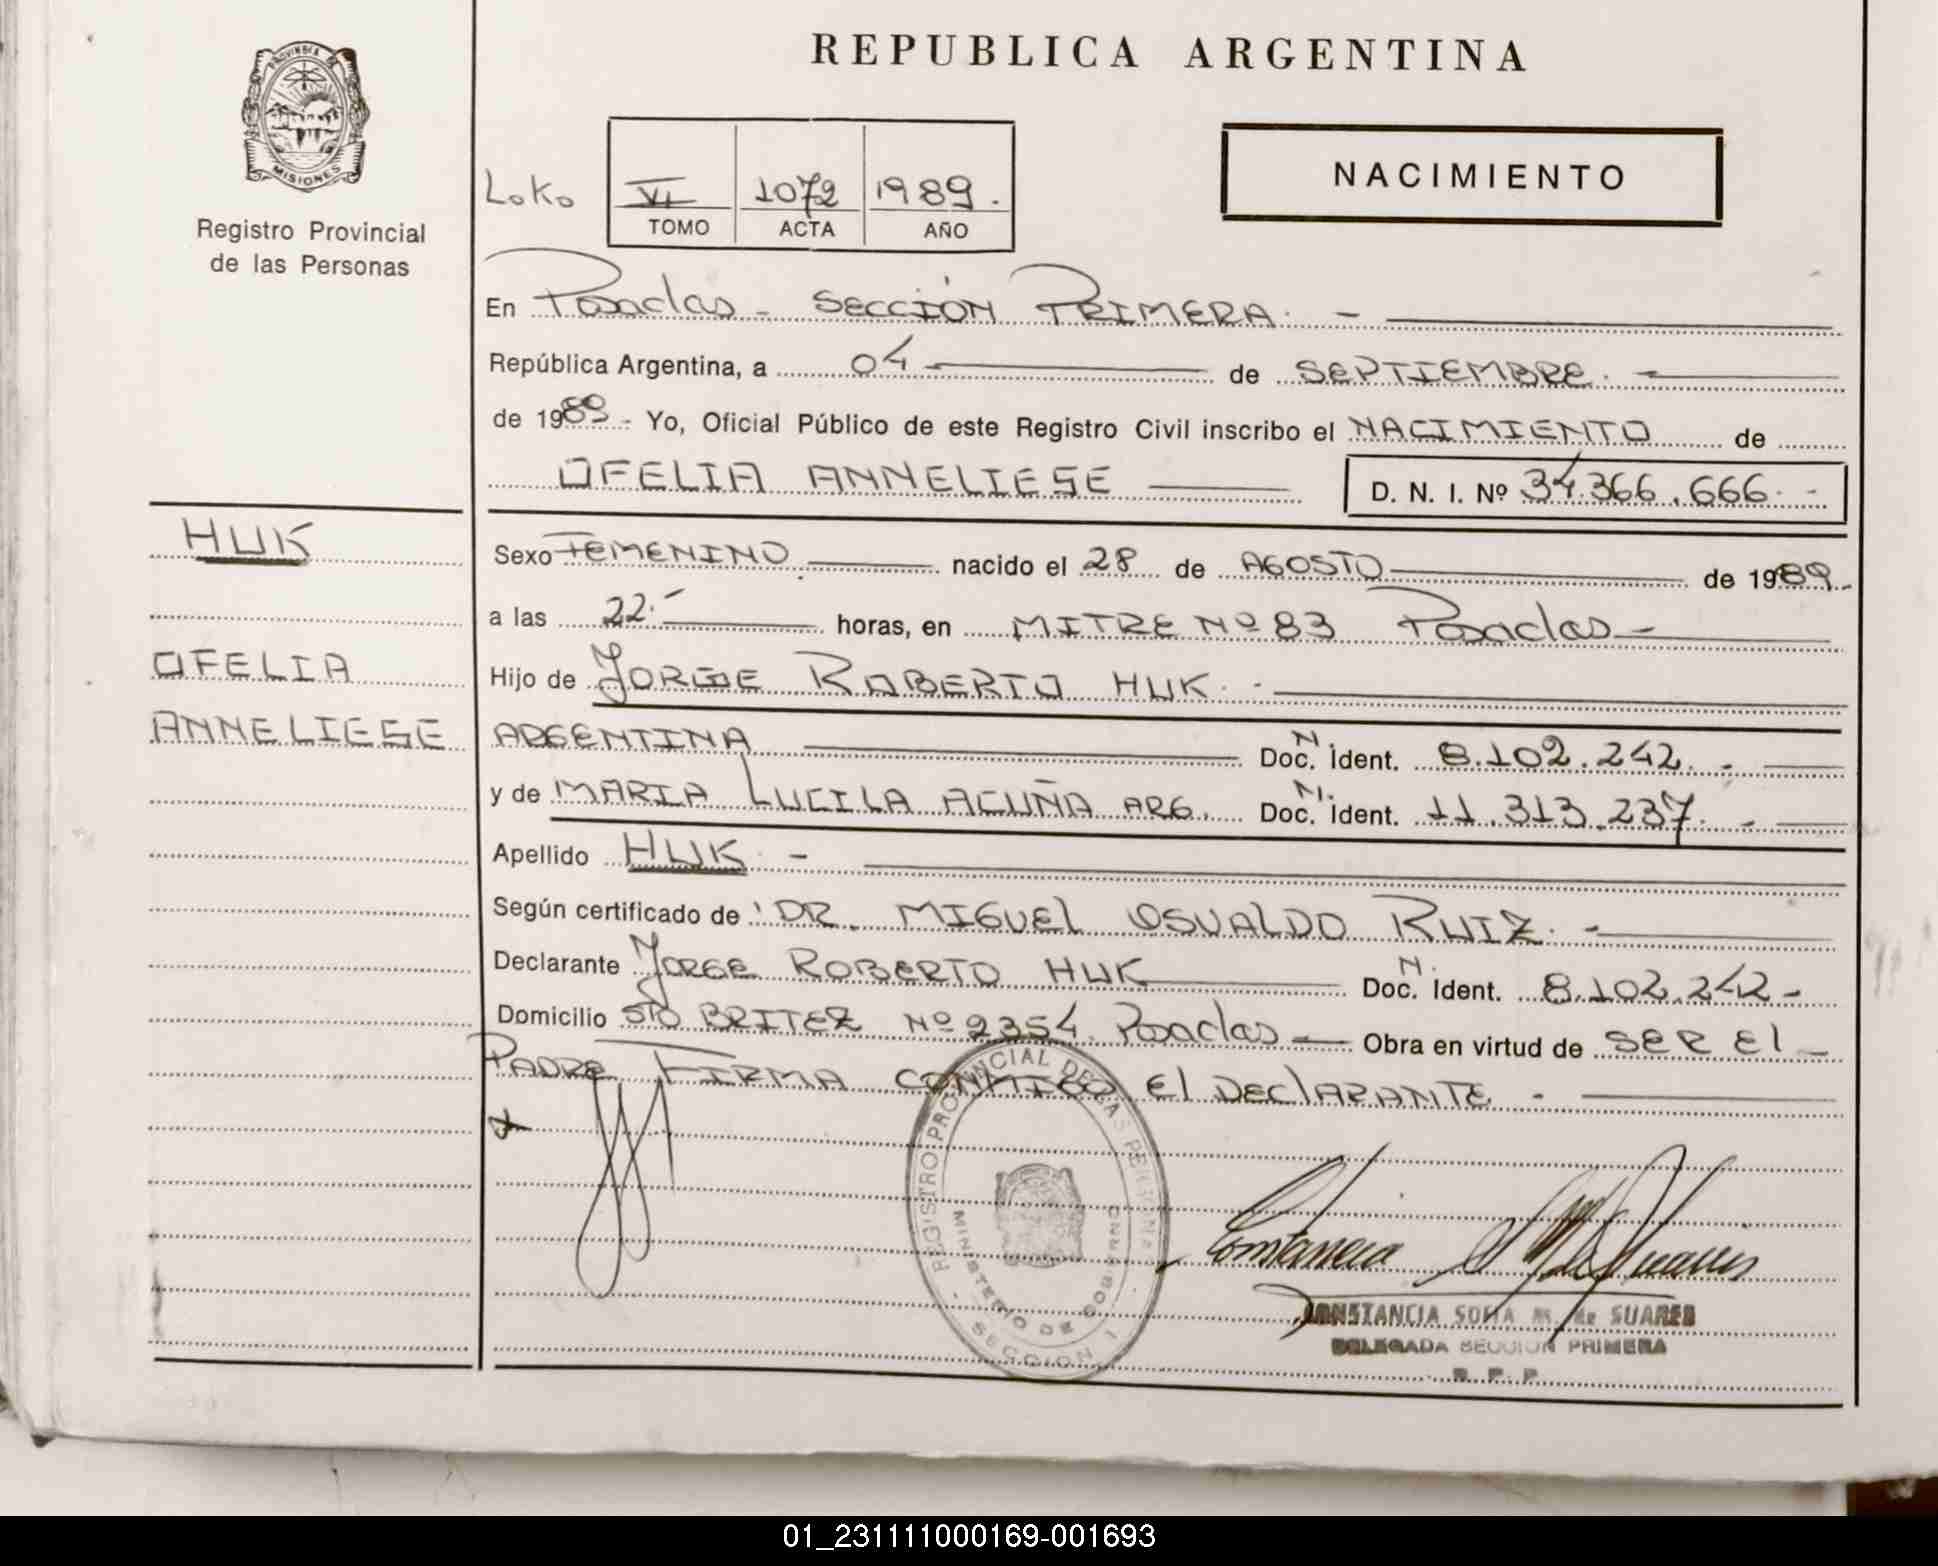 REPUBLICA ARGENTINA
PROVINCIA DE
MISIONES
Registro Provincial
de las Personas
Loko
VI 1072 1989.
TOMO ACTA AÑO
NACIMIENTO
En Posadas - SECCIÓN PRIMERA. -
República Argentina, a 04 de SEPTIEMBRE. -
de 1989.- Yo, Oficial Público de este Registro Civil inscribo el NACIMIENTO de
OFELIA ANNELIESE D. N. I. Nº 34.366.666.-
HUK
OFELIA
ANNELIESE
Sexo FEMENINO nacido el 28 de AGOSTO de 1989.
a las 22.- horas, en MITRE Nº 83 Posadas -
Hijo de JORGE ROBERTO HUK. -
ARGENTINA Doc. N. Ident. 8.102.242. -
y de MARIA LUCILA ACUÑA ARG. Doc. N. Ident. 11.313.237. -
Apellido HUK. -
Según certificado de DR. MIGUEL OSVALDO RUIZ. -
Declarante JORGE ROBERTO HUK Doc. N. Ident. 8.102.242 -
Domicilio STO BRITEZ Nº 2354. Posadas - Obra en virtud de SER El -
PADRE FIRMA CONMIGO El DEClARANTE -
REGISTRO PROVINCIAL DE LAS PERSONAS
MINISTERIO DE GOBIERNO
- SECCION 1 -
CONSTANCIA SOFIA M. de SUARES
DELEGADA SECCION PRIMERA
R. P. P.
01_231111000169-001693